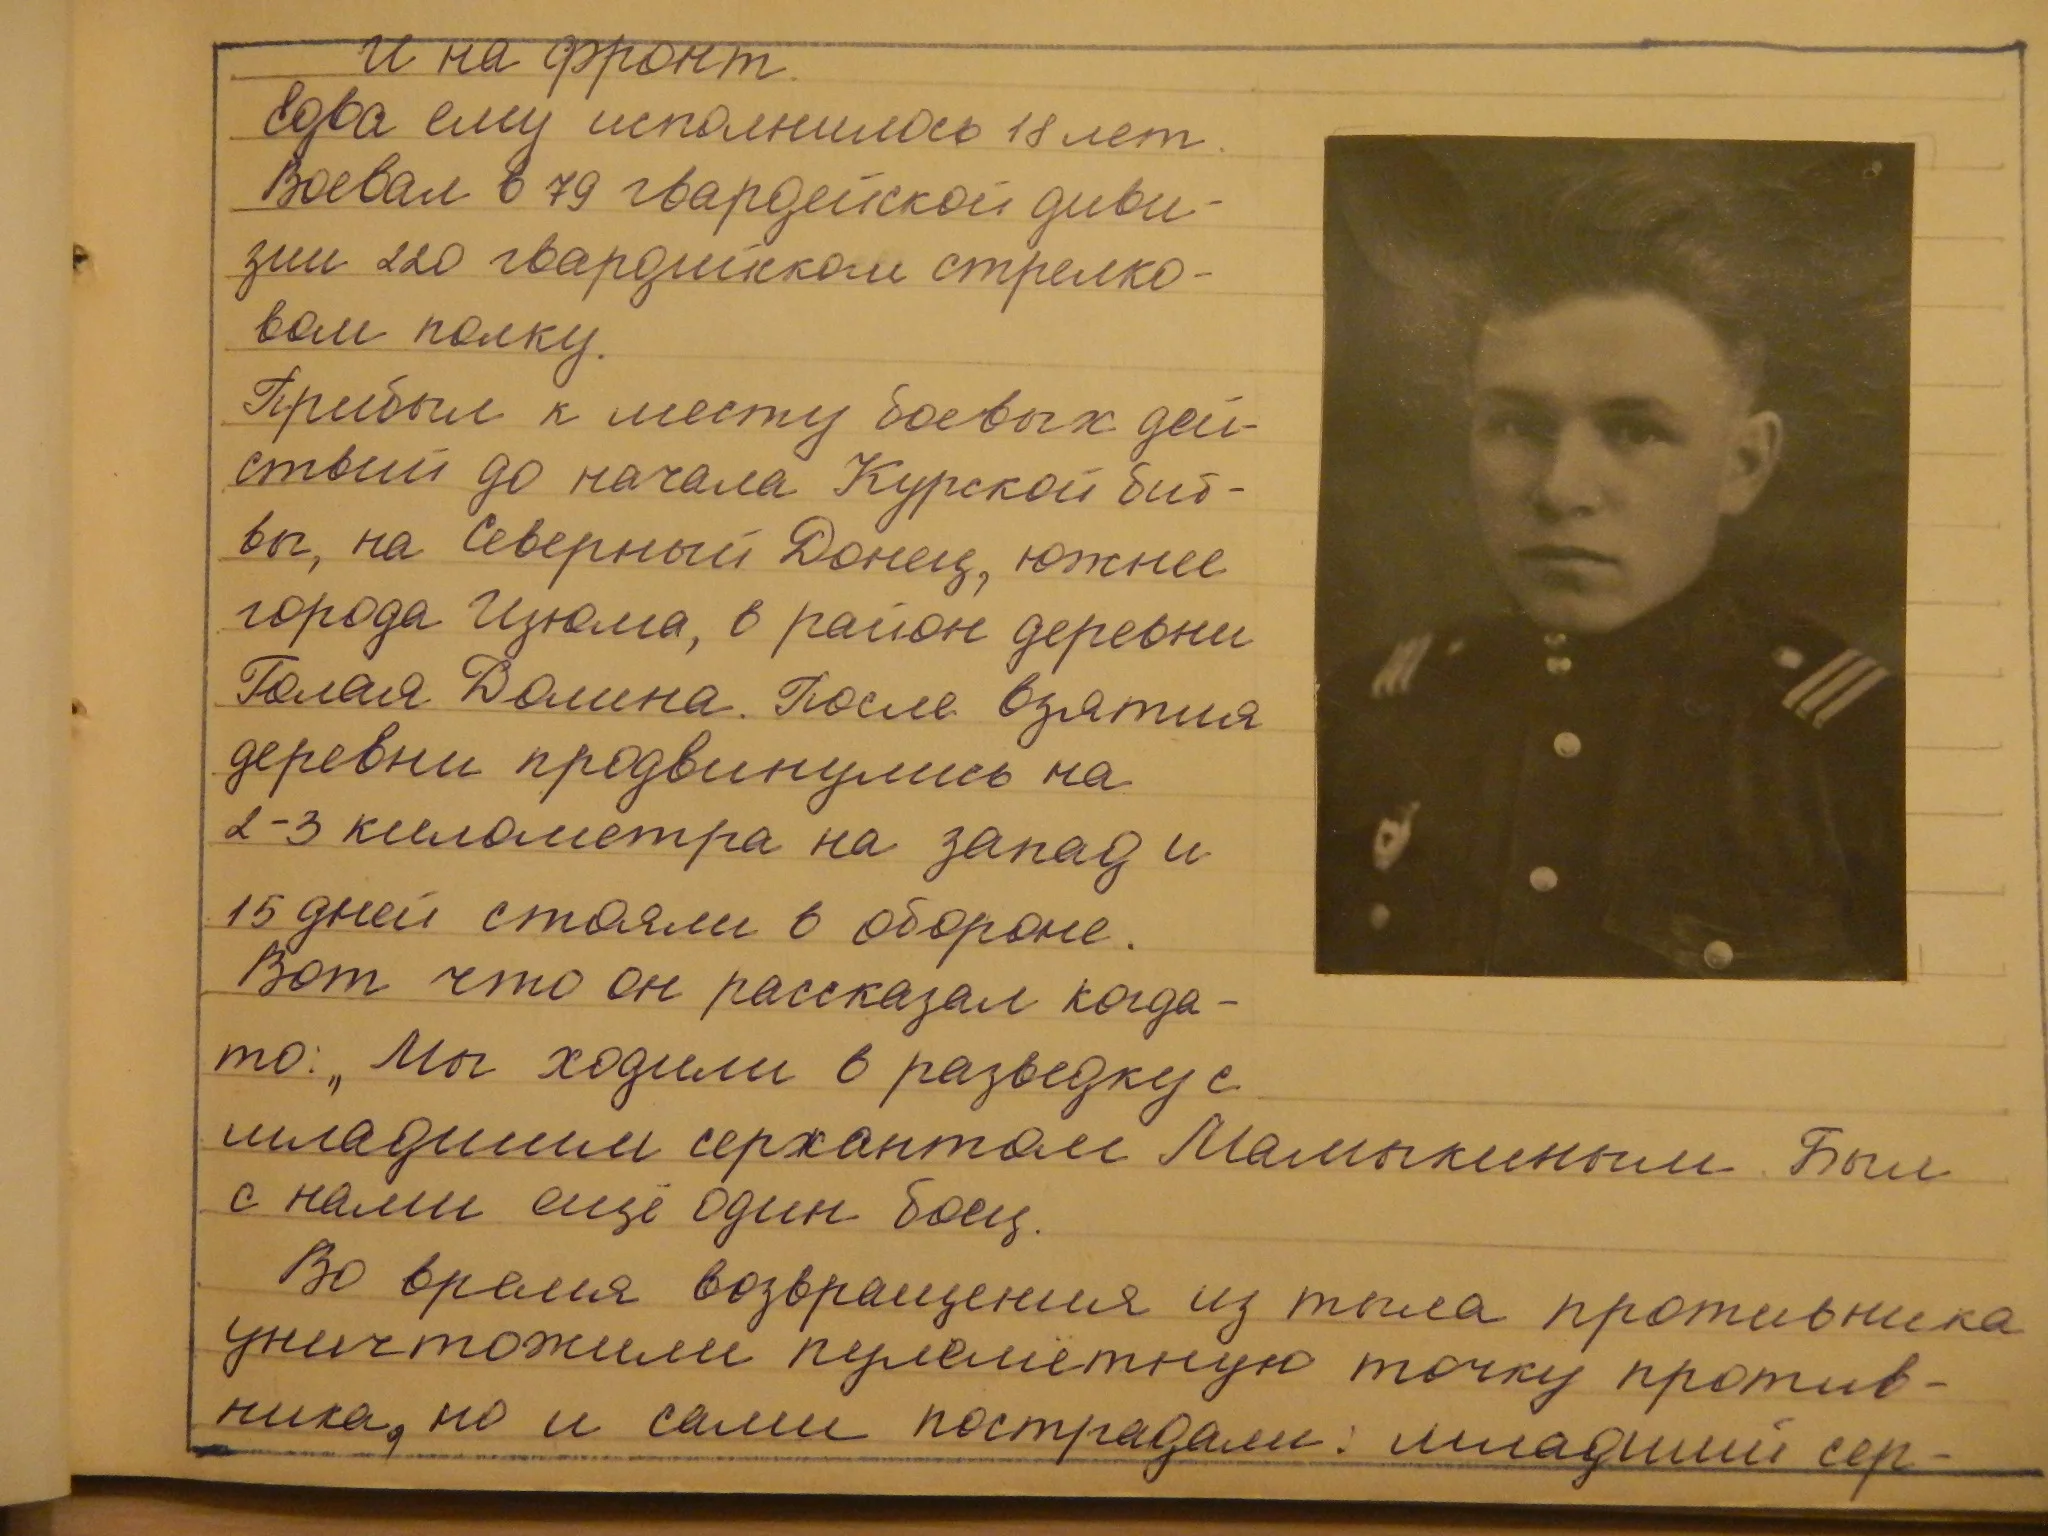 И на фронт.
Едва ему исполнилось 18 лет.
Воевал в 79 гвардейской диви-
зии 220 гвардейском стрелко-
вом полку.
Прибыл к месту боевых дей-
ствий до начала Курской бит-
вы, на Северный Донец, южнее
города Изюма, в район деревни
Голая Долина. После взятия
деревни продвинулись на
2-3 километра на запад и
15 дней стояли в обороне.
Вот что он рассказал когда-
то: „Мы ходили в разведку с
младшим сержантом Мамыкиным. Был
с нами ещё один боец.
Во время возвращения из тыла противника
уничтожили пулемётную точку против-
ника, но и сами пострадали: младший сер-